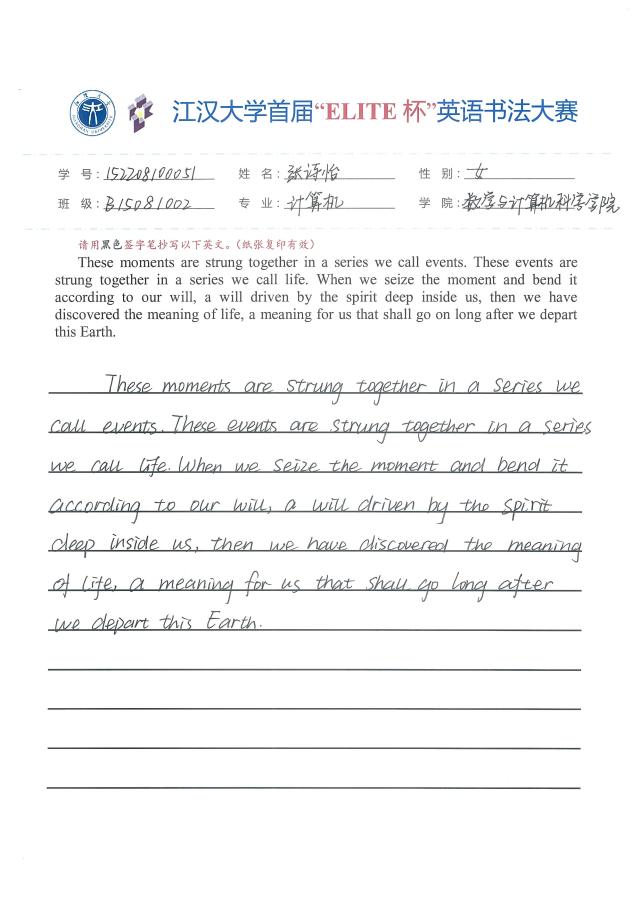 江汉大学首届“ELITE 杯”英语书法大赛
学 号: 152208100051 姓 名: 张诗怡 性 别: 女
班 级: B15081002 专 业: 计算机 学 院: 数学与计算机科学学院
请用黑色签字笔抄写以下英文。(纸张复印有效)
These moments are strung together in a series we call events. These events are
strung together in a series we call life. When we seize the moment and bend it
according to our will, a will driven by the spirit deep inside us, then we have
discovered the meaning of life, a meaning for us that shall go on long after we depart
this Earth.
These moments are strung together in a series we
call events. These events are strung together in a series
we call life. When we seize the moment and bend it
according to our will, a will driven by the spirit
deep inside us, then we have discovered the meaning
of life, a meaning for us that shall go long after
we depart this Earth.